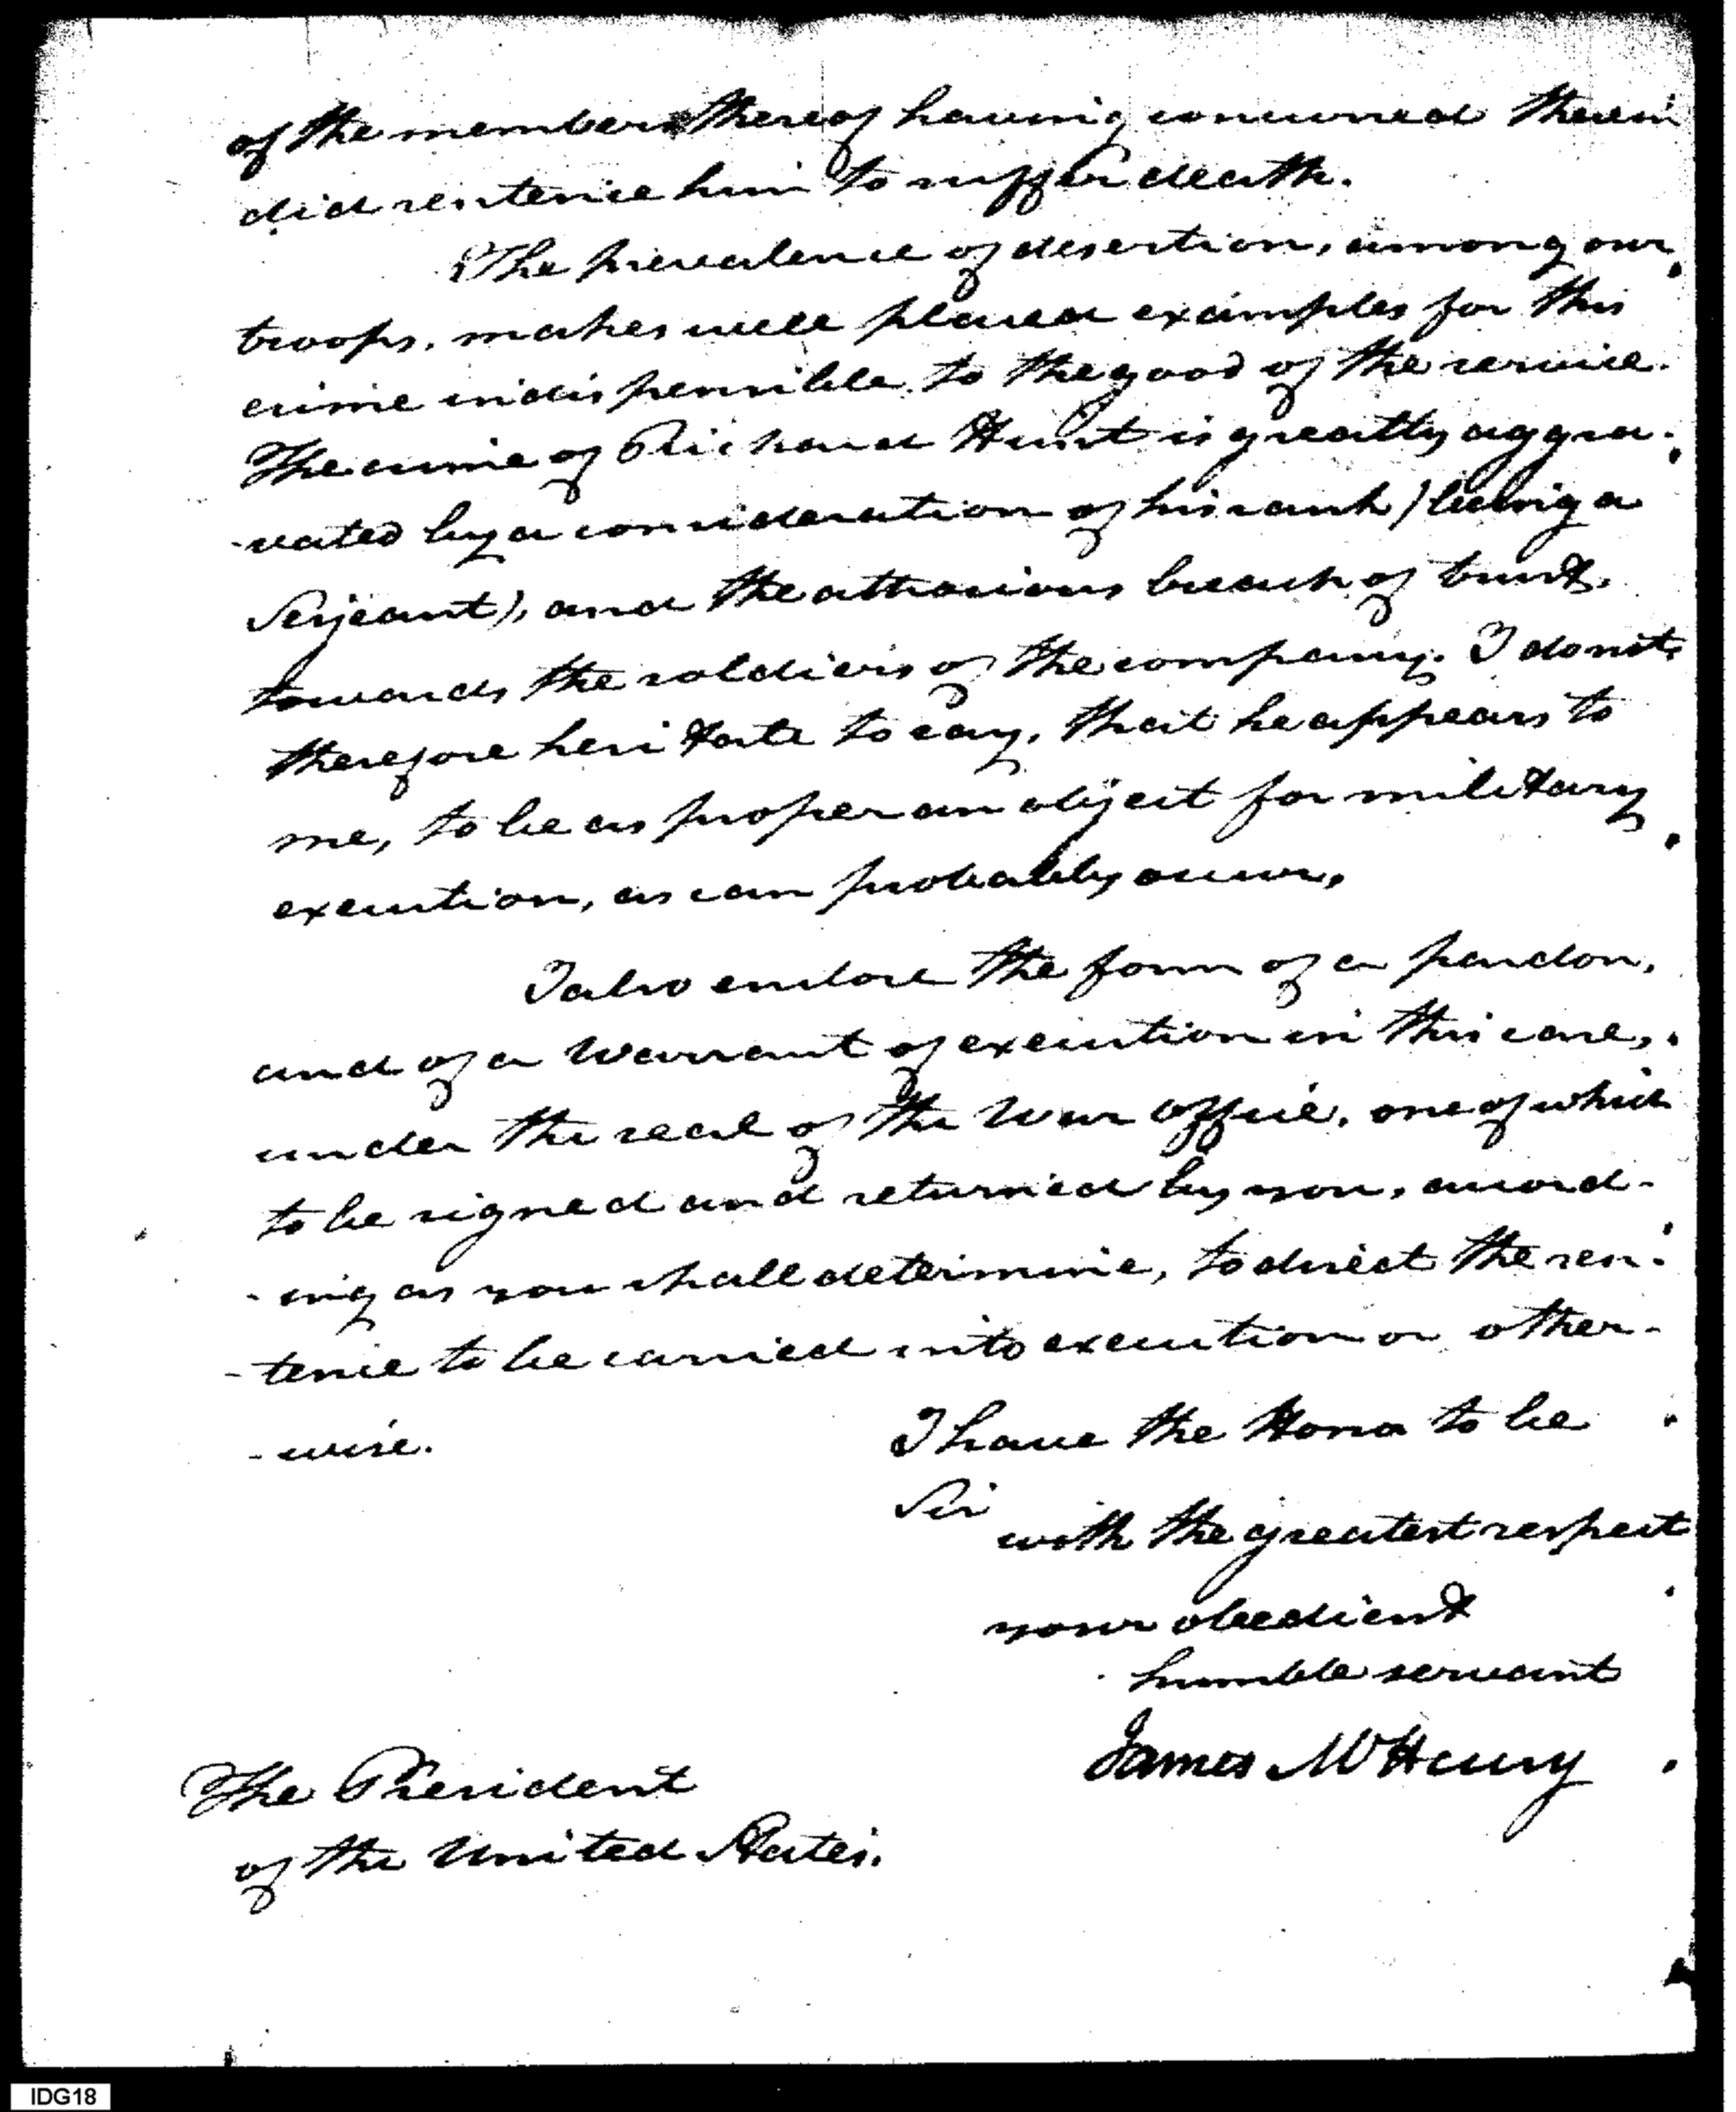 of the members thereof having concurred therein
did sentence him to suffer death.
The prevalence of desertion, among our
troops, makes well placed examples for this
crime indispensible to the good of the service.
The crime of Richard Hunt is greatly aggra-
-vated by a consideration of his rank (being a
Serjeant), and the attrocious breach of trust,
towards the soldiers of the company. I do not,
therefore hesitate to say, that he appears to
me, to be as proper an object for military
execution, as can probably occur.
I also enclose the form of a pardon,
and of a Warrant of execution in this case,
under the seal of the War Office, one of which
to be signed and returned by you, accord-
-ing as you shall determine, to direct the sen-
-tence to be carried into execution or other-
-wise.
I have the Honor to be
Sir
with the greatest respect
your obedient
humble servant
James McHenry
The President
of the United States.
IDG18